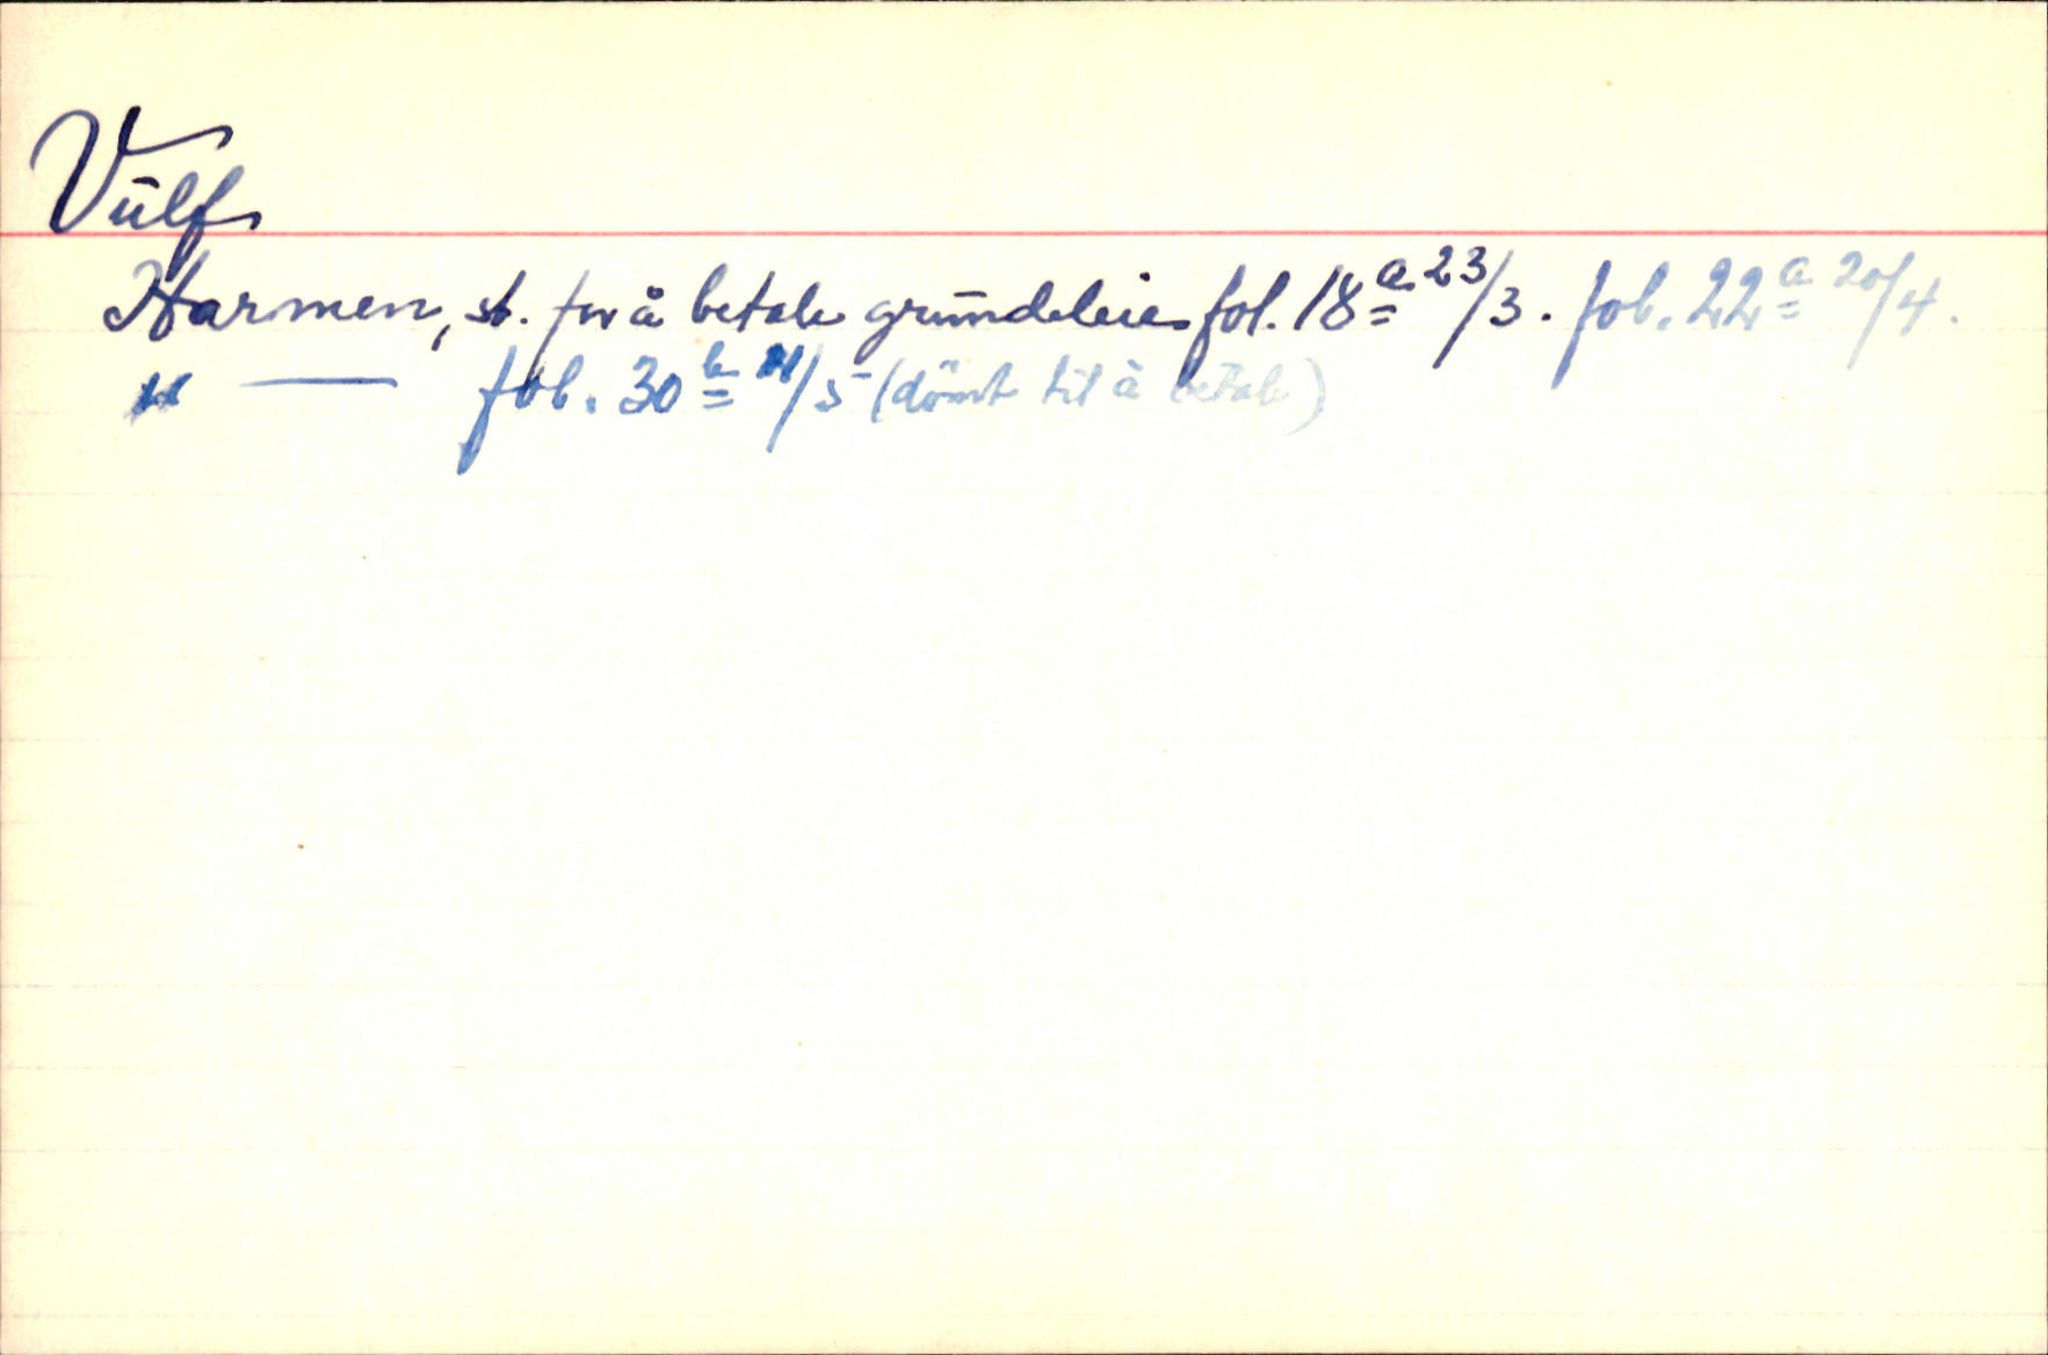 Vulf
Harmen, st. for å betale grundleie fol. 18a 23/3. fol. 22a 20/4.
" — fol. 30b 11/5 (dömt til å betale)